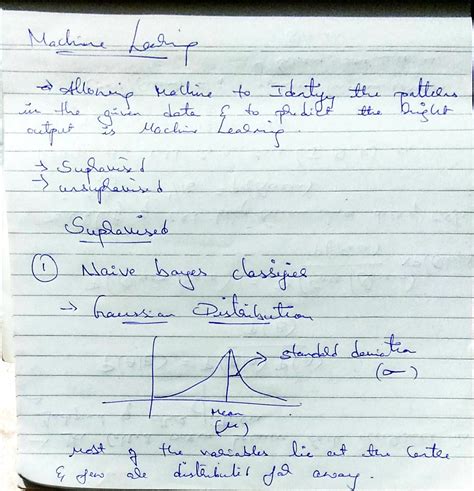 Machine Learning
→ Allowing Machine to Identify the patterns
in the given data & to predict the bright
output is Machine Learning.
→ Supravised
→ unsupravised
Supravised
① Naive bayes classifier
→ Gaussian Distribution
standard deviation
(σ)
Mean
(μ)
most of the variables lie at the center
& few are distributed far away.